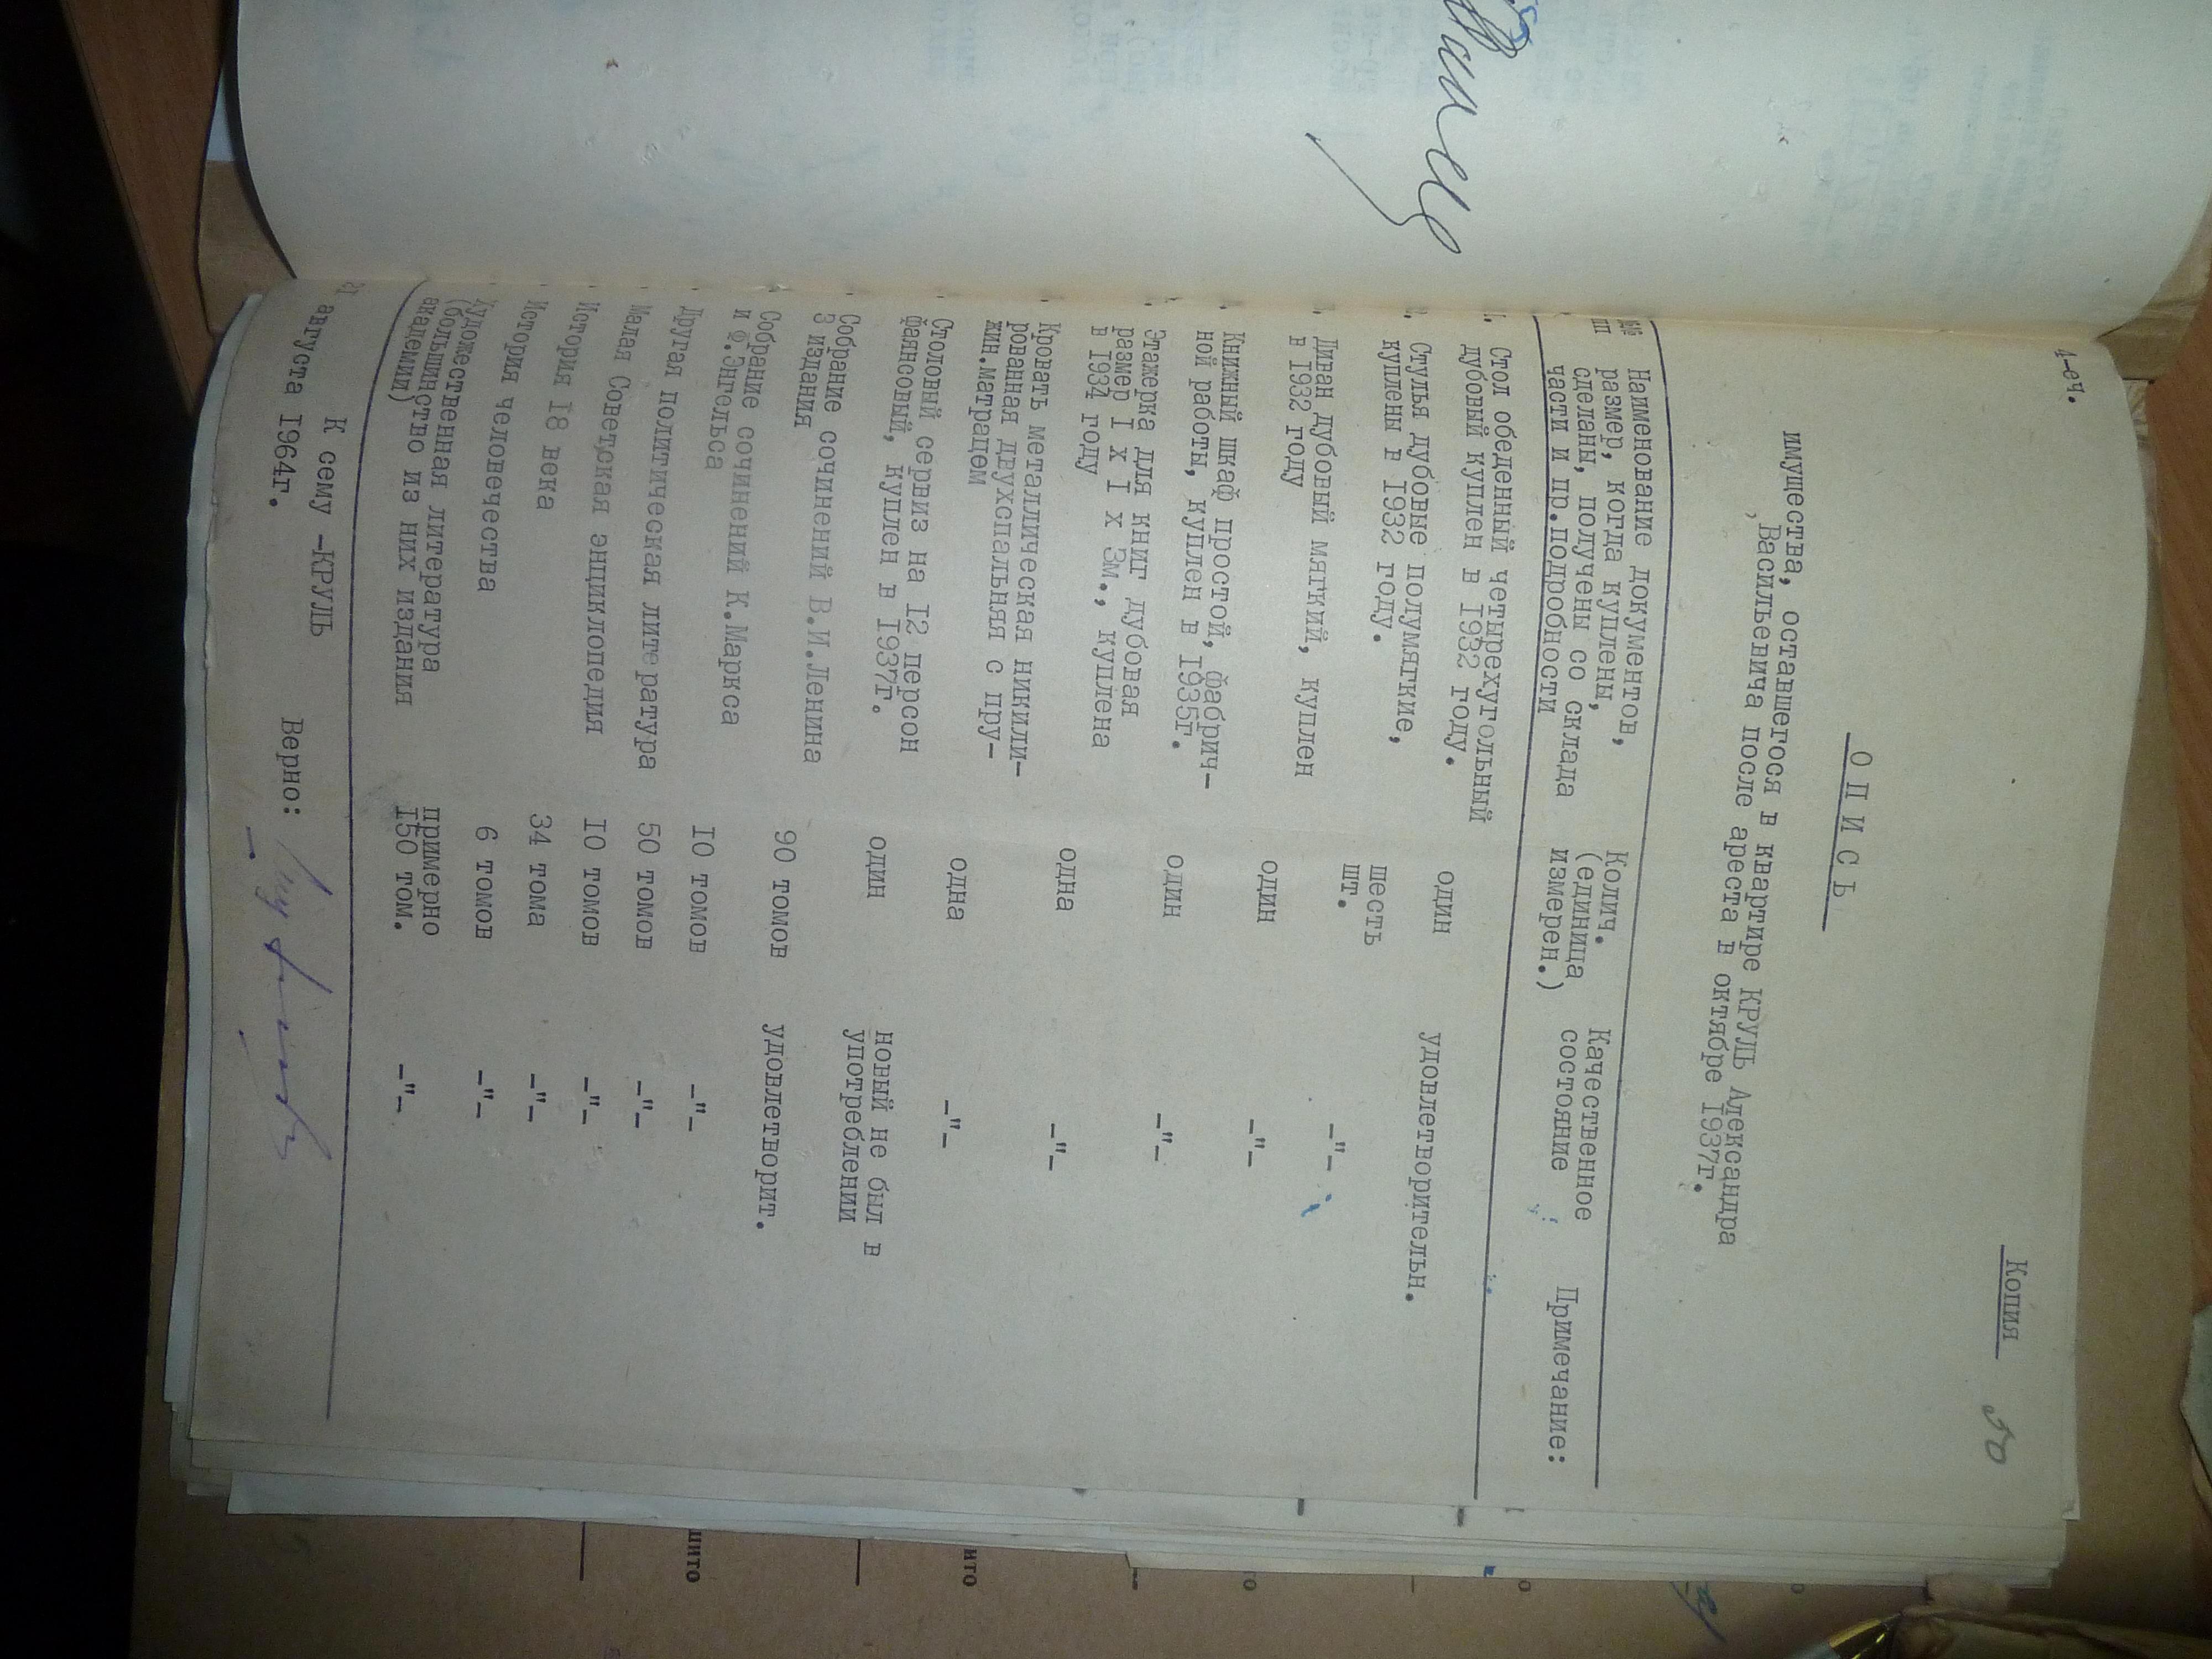 4-еч.
Копия
50
О П И С Ь
имущества, оставшегося в квартире КРУЛЬ Александра
Васильевича после ареста в октябре 1937г.
Наименование документов, Колич. Качественное Примечание:
размер, когда куплены, (единица состояние
сделаны, получены со склада измерен.)
части и пр.подробности
Стол обеденный четырехугольный один удовлетворительн.
дубовый куплен в 1932 году.
Стулья дубовые полумягкие, шесть -"-
куплены в 1932 году. шт.
Диван дубовый мягкий, куплен один -"-
в 1932 году
Книжный шкаф простой, фабрич- один -"-
ной работы, куплен в 1935г.
Этажерка для книг дубовая одна -"-
размер 1 х 1 х 3м., куплена
в 1934 году
Кровать металлическая никили- одна -"-
рованная двухспальняя с пру-
жин.матрацем
Столовый сервиз на 12 персон один новый не был в
фаянсовый, куплен в 1937г. употреблении
Собрание сочинений В.И.Ленина 90 томов удовлетворит.
3 издания
Собрание сочинений К.Маркса 10 томов -"-
и Ф.Энгельса
Другая политическая литература 50 томов -"-
Малая Советская энциклопедия 10 томов -"-
История 18 века 34 тома -"-
История человечества 6 томов -"-
Художественная литература примерно -"-
(большинство из них издания 150 том.
академии)
К сему -КРУЛЬ
августа 1964г. Верно:
шито